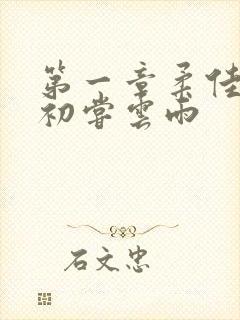 第一章柔佳
初嘗雲雨
石文忠